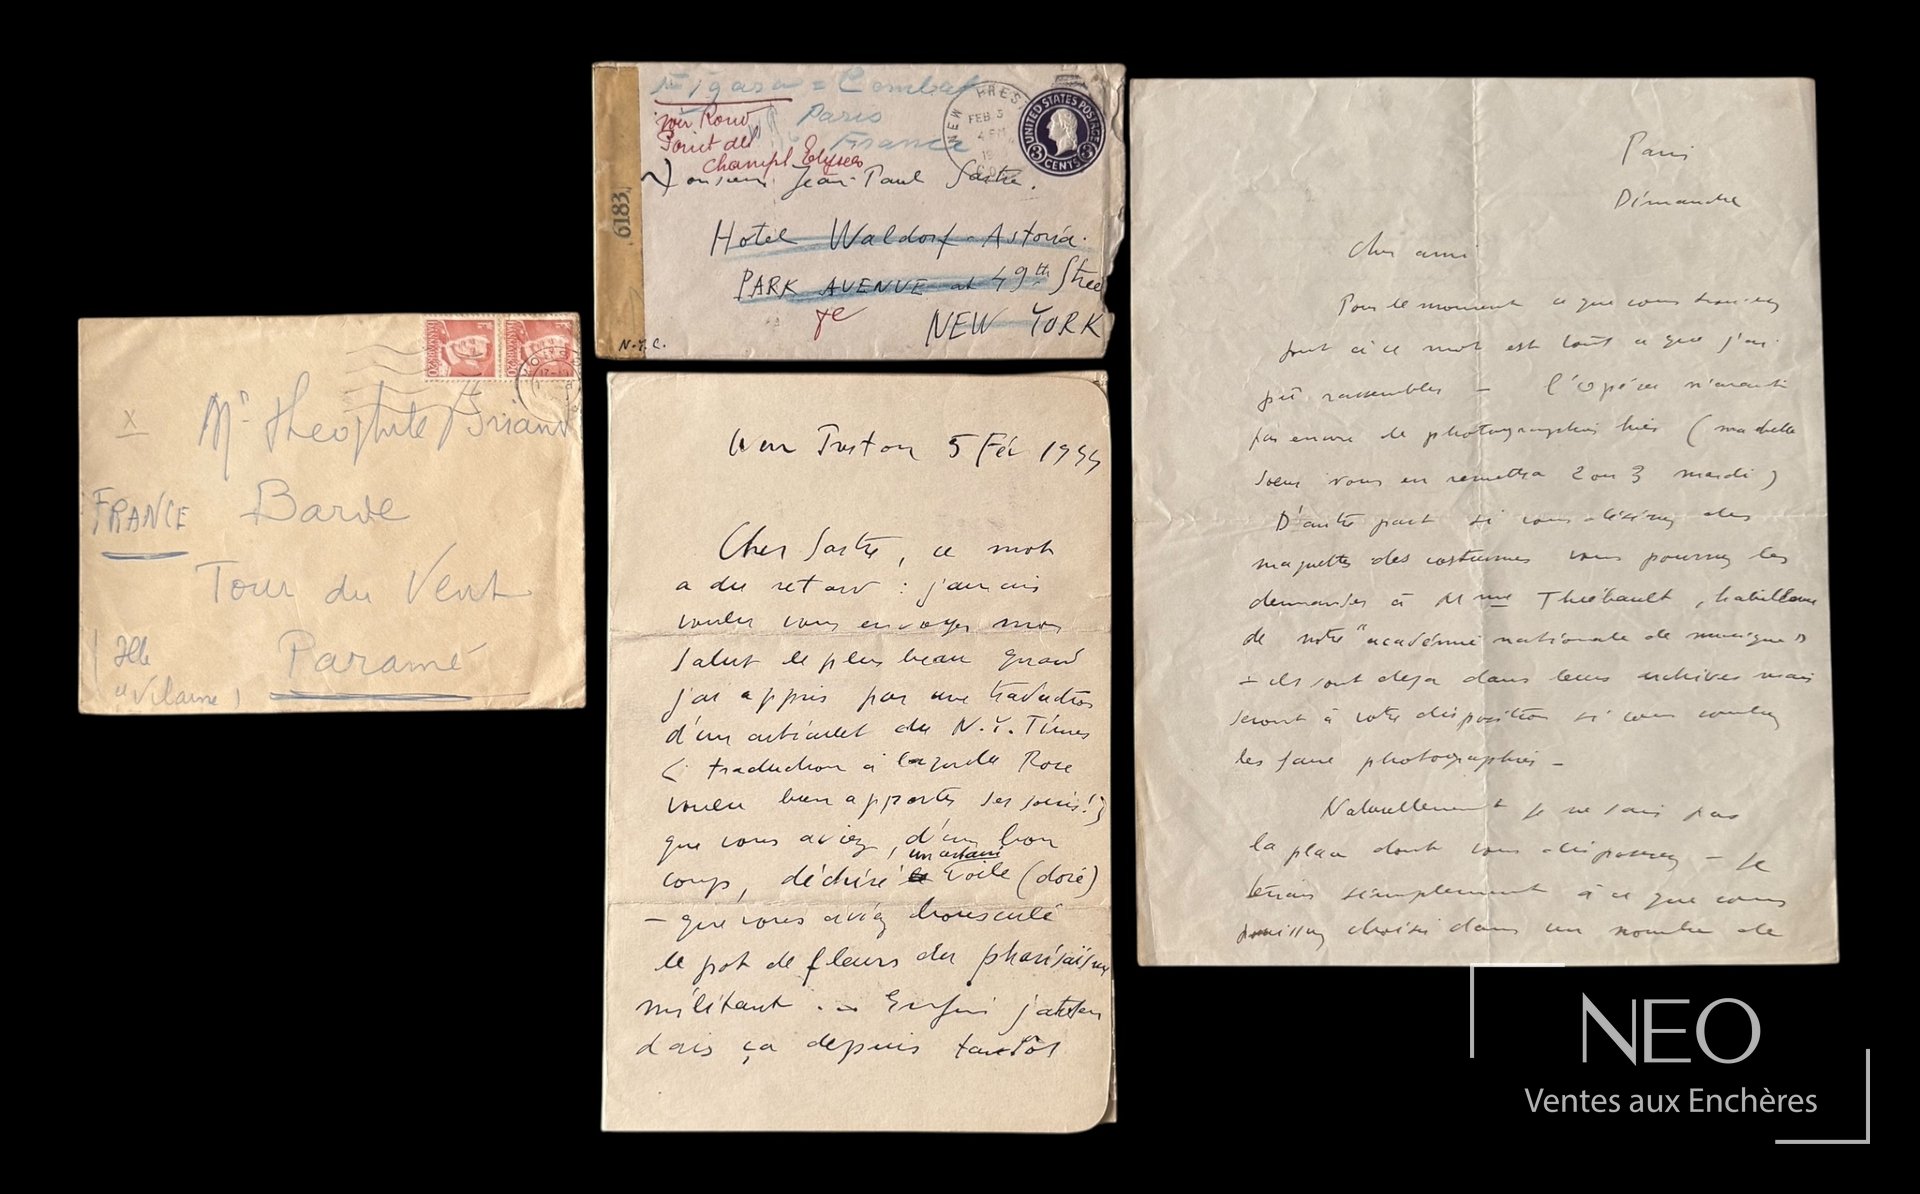 Mr Theophile Briand
FRANCE
Barde
Tour du Vent
Paramé
Ille
et Vilaine
= Combat
Paris
France
voir Rond
Point des
Champs Elysées
NEW PRES
FEB 5
4 PM
UNITED STATES POSTAGE
3 CENTS 3
6183
Monsieur Jean-Paul Sartre.
Hotel Waldorf-Astoria.
PARK AVENUE at 49th Stree
NEW YORK
N.Y.C.
New Preston 5 Fév
Cher Sartre, ce mot
a du retard : j'aurais
voulu vous envoyer mon
salut le plus beau quand
j'ai appris par une traduction
d'un articulet du N.Y. Times
(traduction à laquelle Rose
voulu bien apporter ses soins!)
que vous aviez, d'un bon
coup, déchiré un certain voile (doré)
– que vous aviez bousculé
le pot de fleurs du pharisaïsme
militant. – Enfin j'atten
dais ça depuis tantôt
Paris
Dimanche
Cher ami
Pour le moment ce que vous trouverez
joint à ce mot est tout ce que j'ai
pû rassembler – l'opéra n'avait
pas encore de photographies hier (ma belle
soeur vous en remettra 2 ou 3 mardi)
D'autre part si vous désirez des
maquettes des costumes vous pourrez les
demander à Mme Thiébault, habilleuse
de notre "académie nationale de musique"
– ils sont déja dans leurs archives mais
seront à votre disposition si vous voulez
les faire photographier –
Naturellement je ne sais pas
la place dont vous disposerez – je
tenais simplement à ce que vous
puissiez choisir dans un nombre de
NEO
Ventes aux Enchères